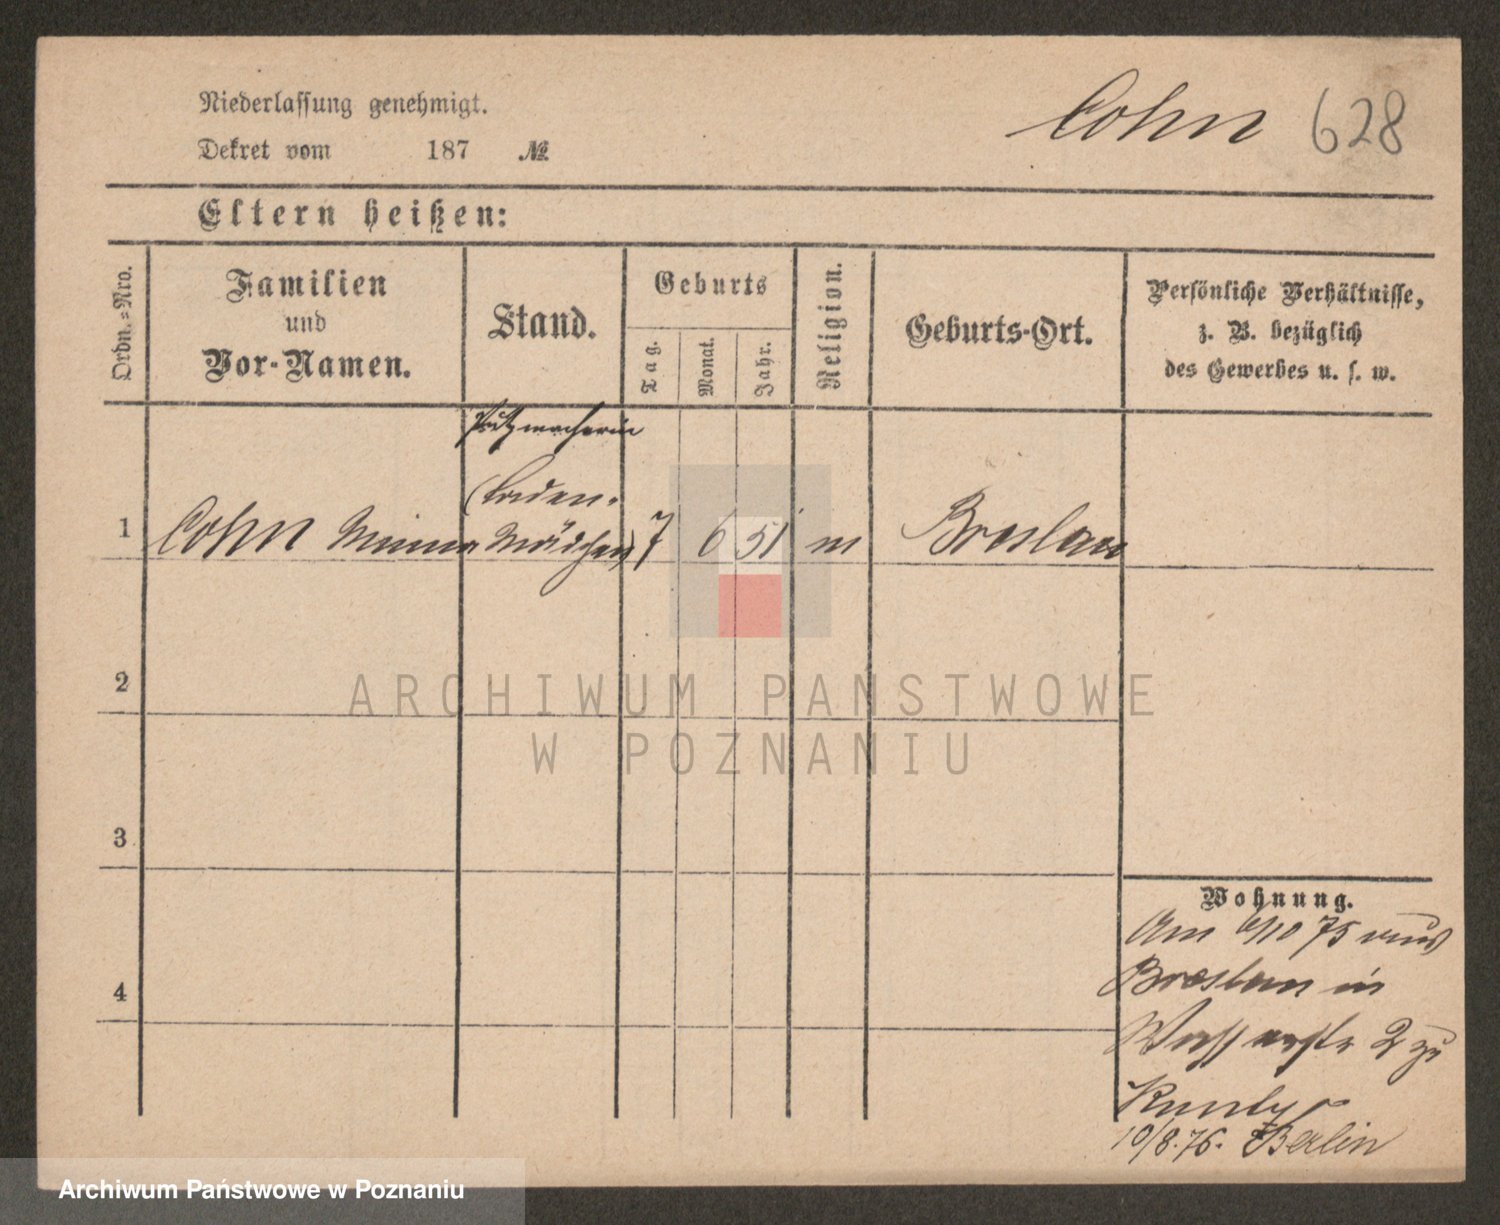 Niederlassung genehmigt.
Dekret vom 187 №
Cohn 628
Eltern heißen:
Ordn.-Nro.
Familien
und
Vor-Namen.
Stand.
Geburts
Tag.
Monat.
Jahr.
Religion.
Geburts-Ort.
Persönliche Verhältnisse,
z. B. bezüglich
des Gewerbes u. s. w.
Putzmacherin
(Laden-
1 Cohn Minna Mädchen) 7 6 51 m Breslau
2
ARCHIWUM PAŃSTWOWE
W POZNANIU
3
Wohnung.
Am 6/10 75 aus
Breslau in
4
Wasserstr 2 zu
10/8.76. Berlin
Archiwum Państwowe w Poznaniu